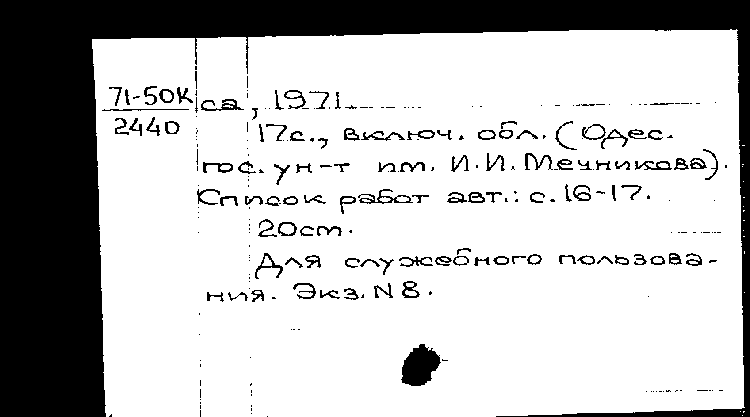 71-50К
2440
са, 1971.
17с., включ. обл. (Одес.
гос. ун-т им. И.И. Мечникова).
Список работ авт.: с. 16-17.
20cm.
Для служебного пользова-
ния. Экз. N 8.